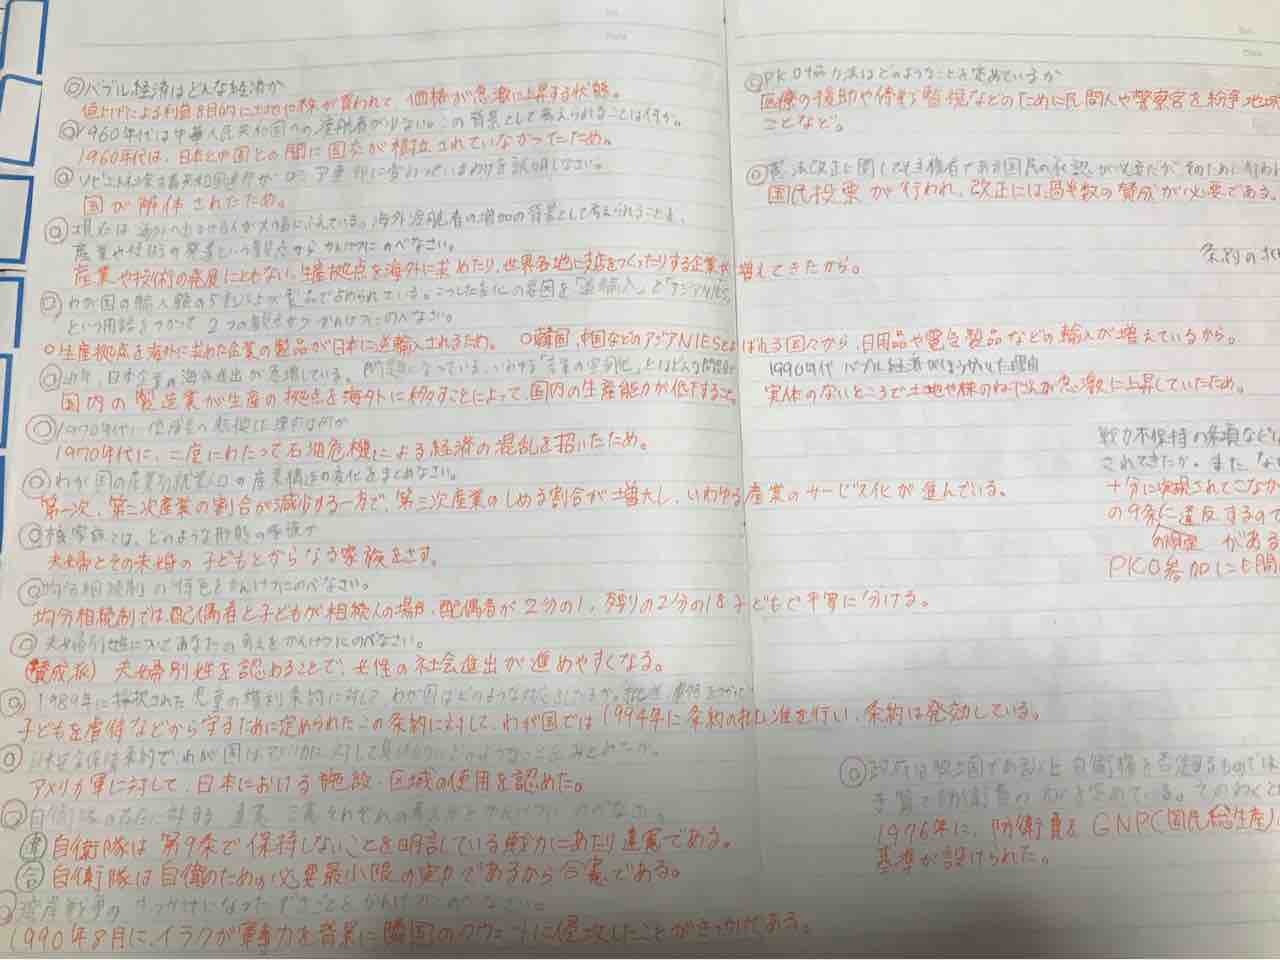 ◎バブル経済はどんな経済か
値上げによる利益を目的に土地に株が買われて 価格が急激に上昇する状態。
◎1960年代は中華人民共和国への渡航者が少ない。この背景として考えられることは何か。
1960年代は、日本と中国との間に国交が樹立されていなかったため。
国が解体されたため。
◎現在は海外へ出る日本人が大幅にふえている。海外渡航者の増加の背景として考えられることを、
産業や技術の発展という観点からかんけつにのべなさい。
産業や技術の発展にともない、生産拠点を海外に求めたり、世界各地に支店をつくったりする企業が増えてきたから。
わが国の輸入額の5割以上が製品で占められている。こうした変化の要因を「逆輸入」と「アジアNIES」
という用語をつかって2つの観点からかんけつにのべなさい。
○生産拠点を海外に求めた企業の製品が日本に逆輸入されるため。 ○韓国、中国などのアジアNIESとよばれる国々から、日用品や電気製品などの輸入が増えているから。
◎近年、日本企業の海外進出が急増している。問題になっている、いわゆる「産業の空洞化」とはどんな問題か
国内の製造業が生産の拠点を海外に移すことによって、国内の生産能力が低下すること
◎1970年代に
1970年代に、二度にわたって石油危機による経済の混乱を招いたため。
◎わが国の産業別就業人口の産業構造の変化をまとめなさい。
第一次、第二次産業の割合が減少する一方で、第三次産業のしめる割合が増大し、いわゆる産業のサービス化が進んでいる。
◎核家族とは、どのような形態の家族か
夫婦とその夫婦の子どもとからなる家族をさす。
◎均分相続制の特色をかんけつにのべなさい。
均分相続制では、配偶者と子どもが相続人の場合、配偶者が2分の1、残りの2分の1を子どもで平等に分ける。
◎夫婦別姓についてあなたの考えをかんけつにのべなさい。
(賛成派) 夫婦別姓を認めることで、女性の社会進出が進めやすくなる。
◎1989年に採択された児童の権利条約に対して、わが国はどのような
子どもを虐待などから守るために定められたこの条約に対して、わが国では1994年に条約の批准を行い、条約は発効している。
◎日米安全保障条約で、わが国は
アメリカ軍に対して、日本における施設・区域の使用を認めた。
◎自衛隊の存在に対する
違 自衛隊は第9条で保持しないことを明言している戦力にあたり違憲である。
合 自衛隊は自衛のための必要最小限の実力であるから合憲である。
湾岸戦争のきっかけになったできごとをかんけつにのべなさい。
1990年8月に、イラクが軍事力を背景に隣国のクウェートに侵攻したことがきっかけである。
◎PKO協力法はどのようなことを定めているか
医療の援助や停戦監視などのために民間人や警察官を紛争地域
ことなど。
◎憲法改正に関して主権者である国民の承認が必要だが、そのために行われ
国民投票が行われ、改正には過半数の賛成が必要である。
条約の
1990年代 バブル経済がほうかいした理由
実体のないところで土地や株のねだんが急激に上昇していたため。
戦力不保持の条項など
されてきたか。また、
十分に実現されてこなか
の9条に違反するので
の問題 がある
PKO参加にも
◎政府は独立国である以上自衛権を否定するものでは
1976年に、防衛費をGNP(国民総生産)
基準が設けられた。